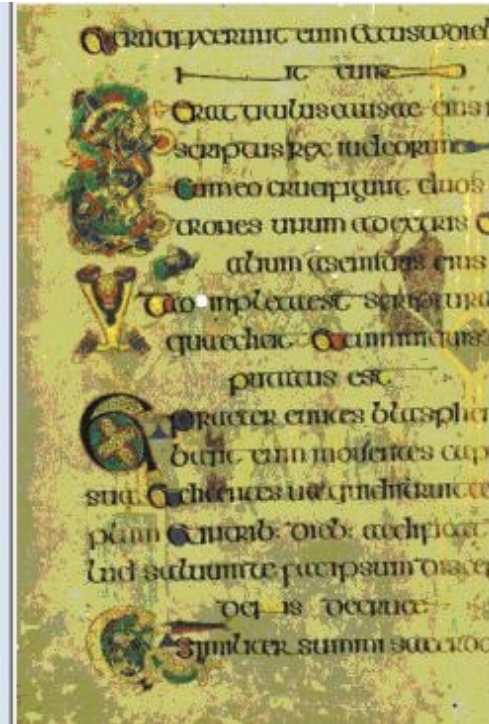 et crucifixerunt eum et custodieb
eum
Erat titulus causae eius
scriptus rex iudeorum
Et cum eo crucifigunt duos
trones unum a dextris
alium a senitris eius
impleta est scriptura
quae dicit et cum iniquis
putatus est
praeter euntes blasphe
bant eum mouentes cap
sua et dicentes ua qui distruit
plum et in trib: dieb: aedificat
saluum te fac ipsum discen
de cruce
Similiter summi sacerdo